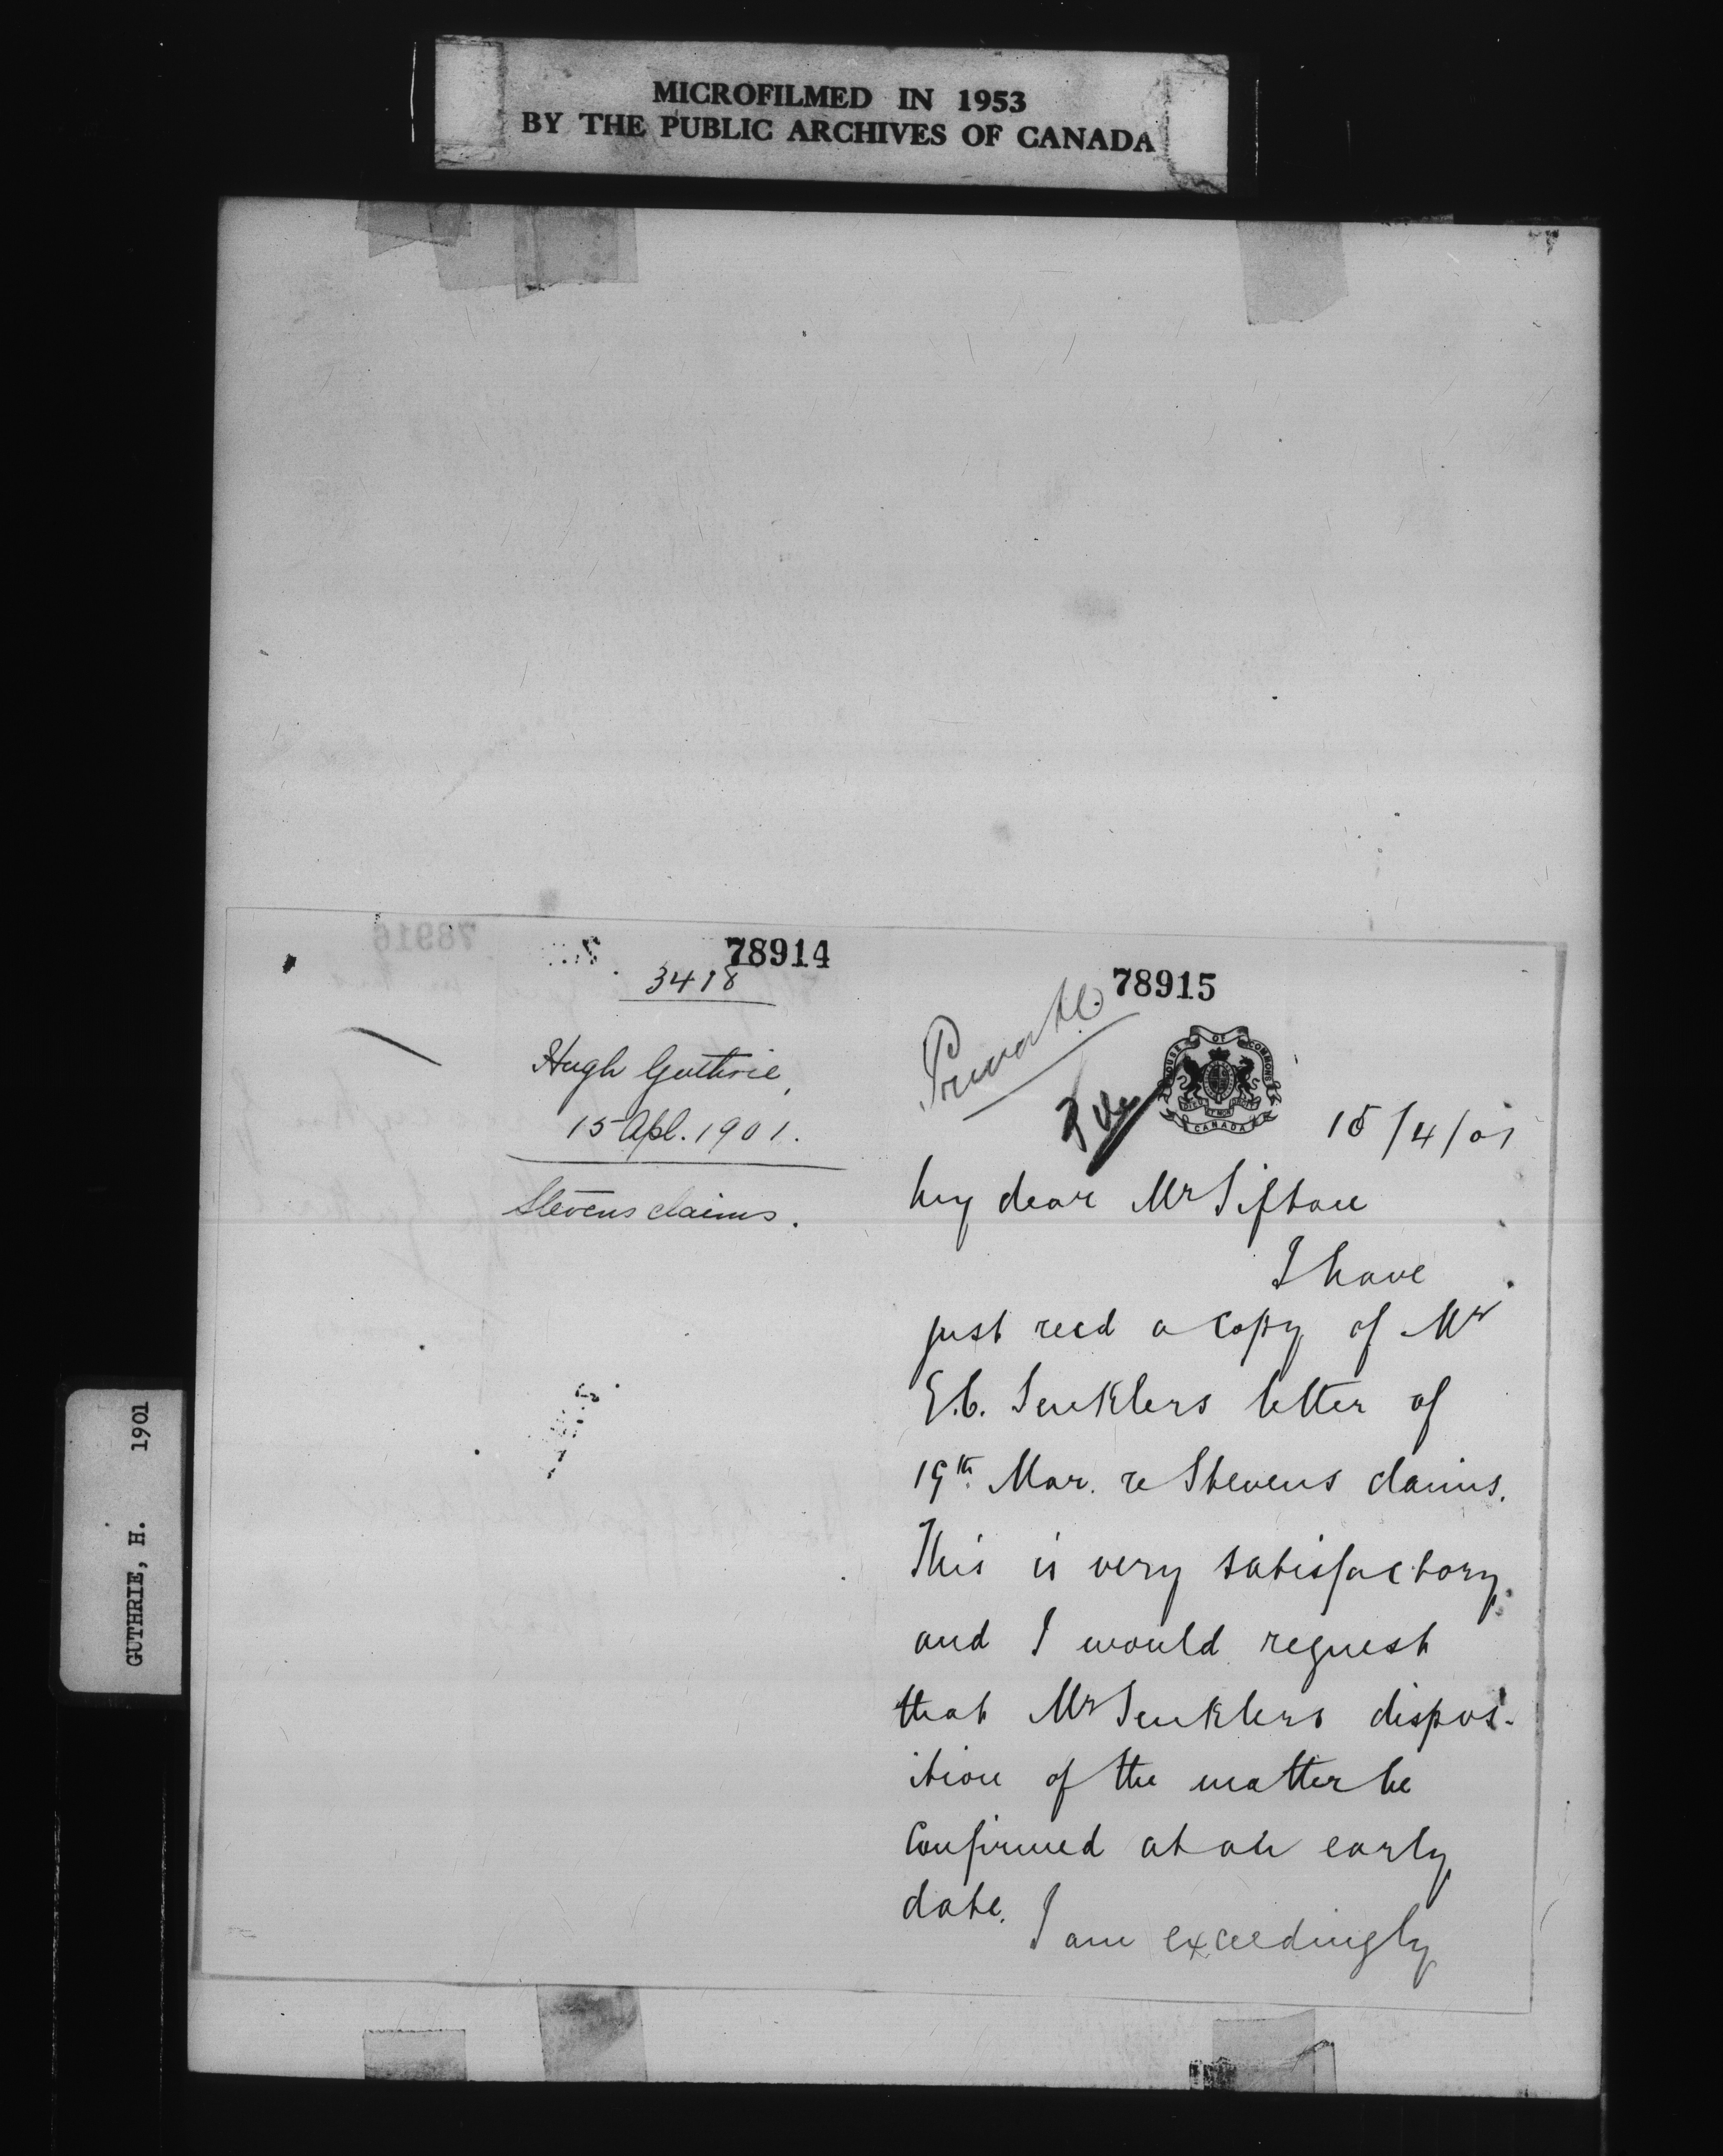 MICROFILMED IN 1953
BY THE PUBLIC ARCHIVES OF CANADA
GUTHRIE, H. 1901
78916
78914
3418
Hugh Guthrie,
15 Apl. 1901.
Stevens claims.
78915
Private
File
HOUSE OF COMMONS
CANADA
15/4/01
My dear Mr Sifton
I have
just recd a copy of Mr
E.C. Senklers letter of
19th Mar. re Stevens claims.
This is very satisfactory
and I would request
that Mr Senklers dispos-
ition of the matter be
confirmed at an early
date.
I am exceedingly